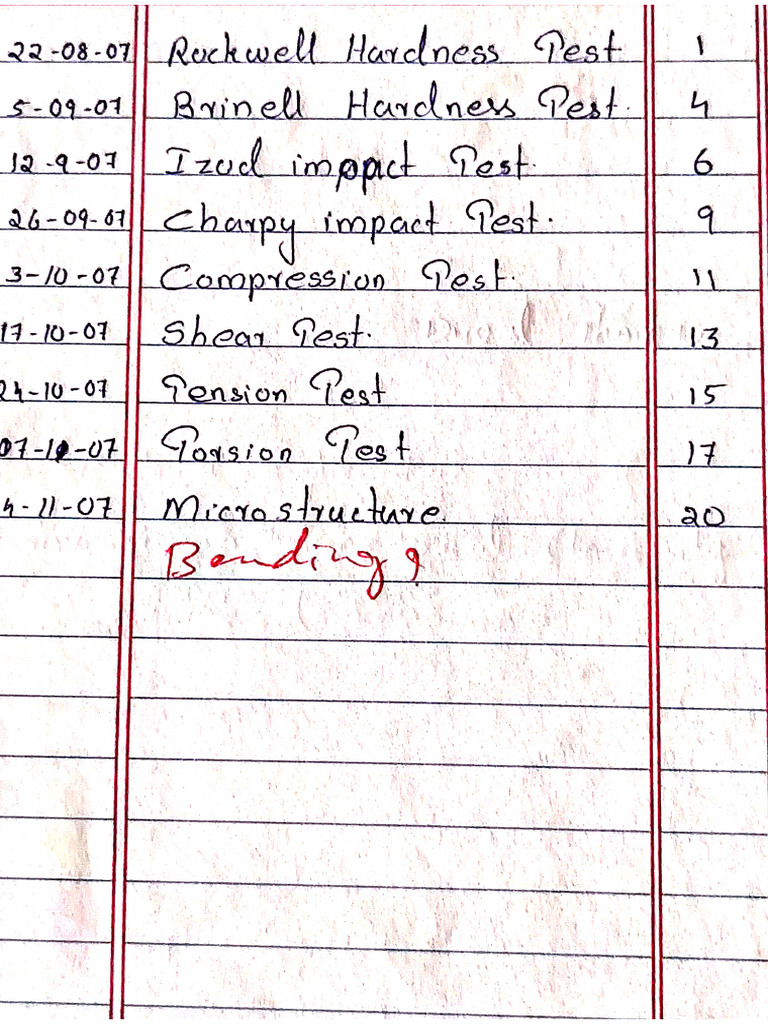 22-08-07 Rockwell Hardness Test 1
5-09-07 Brinell Hardness Test. 4
12-9-07 Izod impact Test. 6
26-09-07 Charpy impact Test. 9
3-10-07 Compression Test. 11
17-10-07 Shear Test. 13
24-10-07 Tension Test 15
07-11-07 Torsion Test 17
4-11-07 Microstructure. 20
Bending ?